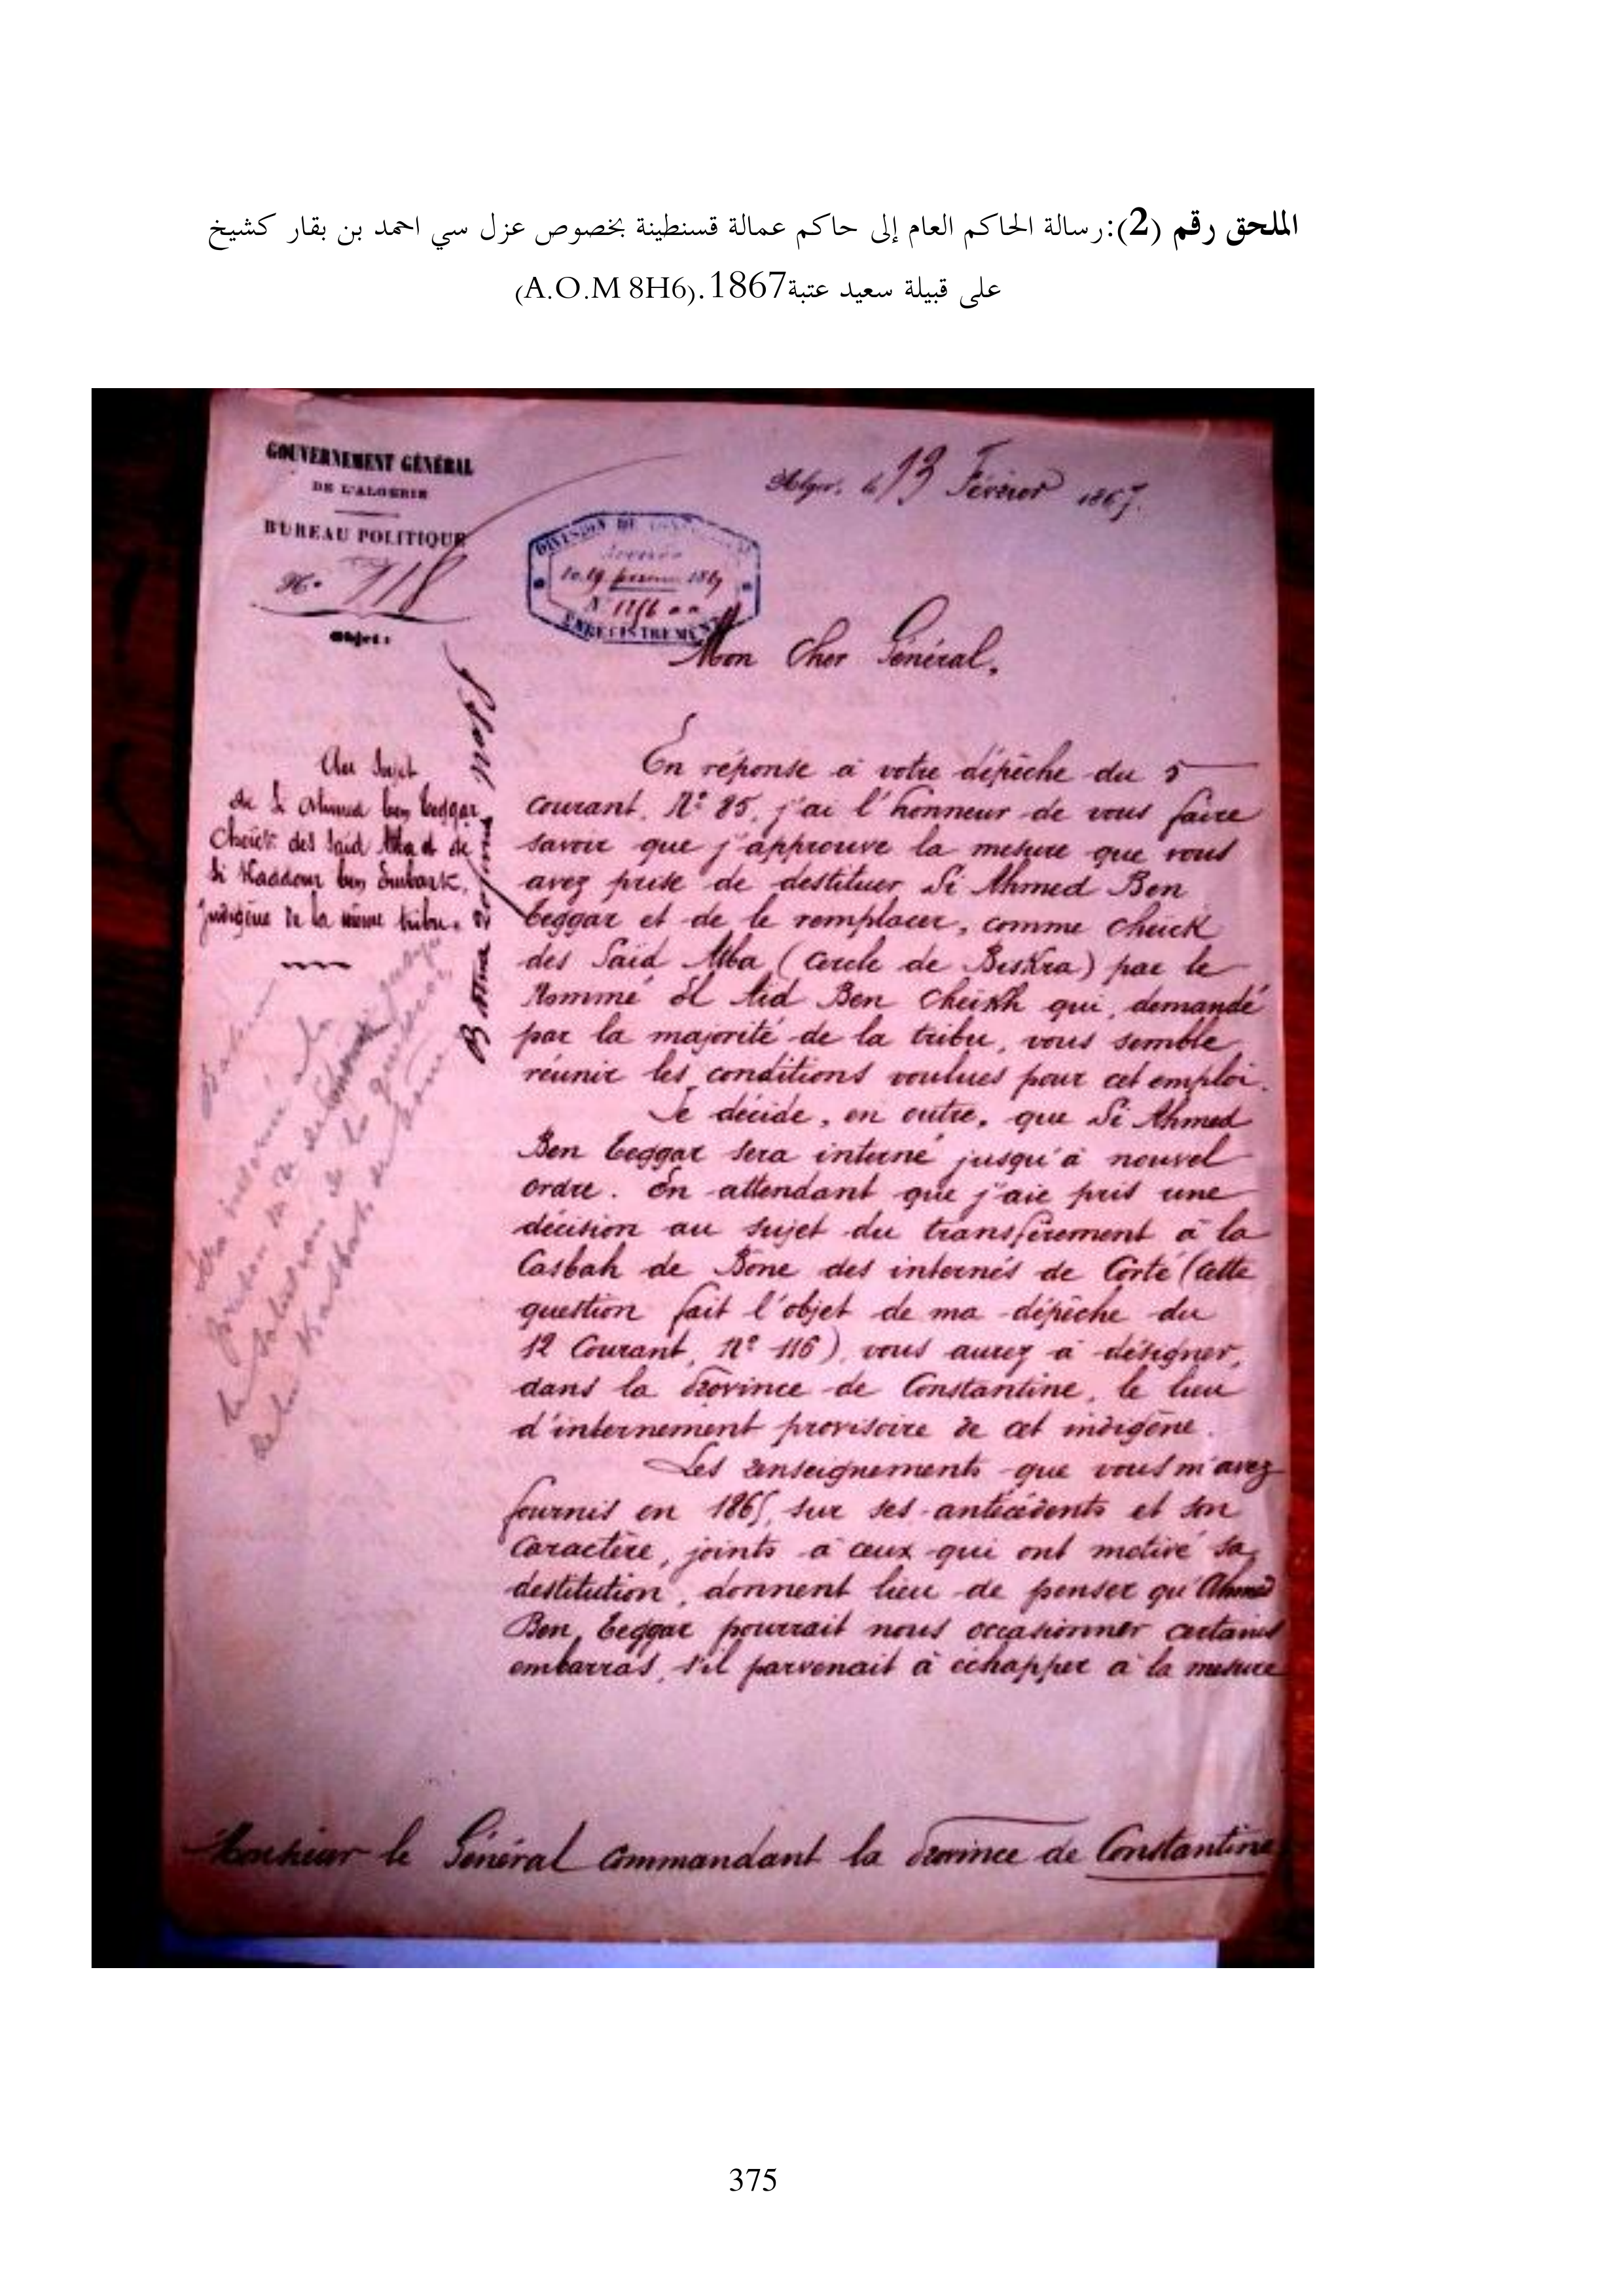 الملحق رقم (2):رسالة الحاكم العام إلى حاكم عمالة قسنطينة بخصوص عزل سي احمد بن بقار كشيخ
على قبيلة سعيد عتبة1867.(A.O.M 8H6)
GOUVERNEMENT GÉNÉRAL
DE L'ALGERIE
BUREAU POLITIQUE
N° 118
Objet:
Au Sujet
de Si Ahmed ben beggar
Cheick des Saïd Atba et de
Si Kaddour ben Embark,
indigène de la même tribu.
Alger, le 13 Février 1867.
DIVISION DE
Arrivée
le 19 1867
N°
ENREGISTREMENT
Mon Cher Général,
En réponse à votre dépêche du 5
courant, N° 85, j'ai l'honneur de vous faire
savoir que j'approuve la mesure que vous
avez prise de destituer Si Ahmed Ben
beggar et de le remplacer, comme cheick
des Saïd Atba (cercle de Biskra) par le
Nommé El Aïd Ben Cheikh qui, demandé
par la majorité de la tribu, vous semble
réunir les conditions voulues pour cet emploi.
Je décide, en outre, que Si Ahmed
Ben beggar sera interné jusqu'à nouvel
ordre. En attendant que j'aie pris une
décision au sujet du transfèrement à la
Casbah de Bone des internés de Corté (cette
question fait l'objet de ma dépêche du
12 Courant, N° 116), vous aurez à désigner,
dans la Province de Constantine, le lieu
d'internement provisoire de cet indigène.
Les renseignements que vous m'avez
fournis en 1865, sur ses antécédents et son
Caractère, joints à ceux qui ont motivé sa
destitution, donnent lieu de penser qu'Ahmed
Ben beggar pourrait nous occasionner certains
embarras, s'il parvenait à échapper à la mesure
Monsieur le Général Commandant la Province de Constantine
375